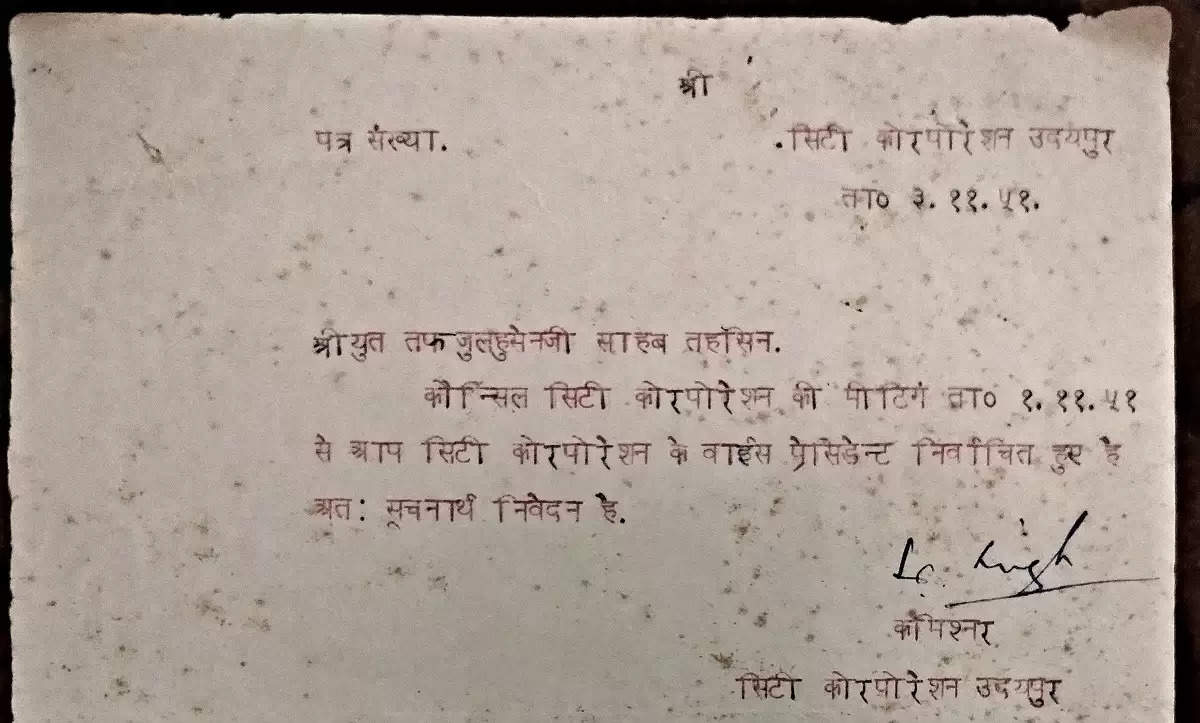 श्री
पत्र संख्या. .सिटी कोरपोरेशन उदयपुर
ता० ३. ११. ५१.
श्रीयुत तफजुलहुसेनजी साहब तहसिन.
कौन्सिल सिटी कोरपोरेशन की मीटिगं ता० १. ११. ५१
से आप सिटी कोरपोरेशन के वाईस प्रेसिडेन्ट निर्वाचित हुए है
अत: सूचनार्थ निवेदन है.
Singh
कमिश्नर
सिटी कोरपोरेशन उदयपुर